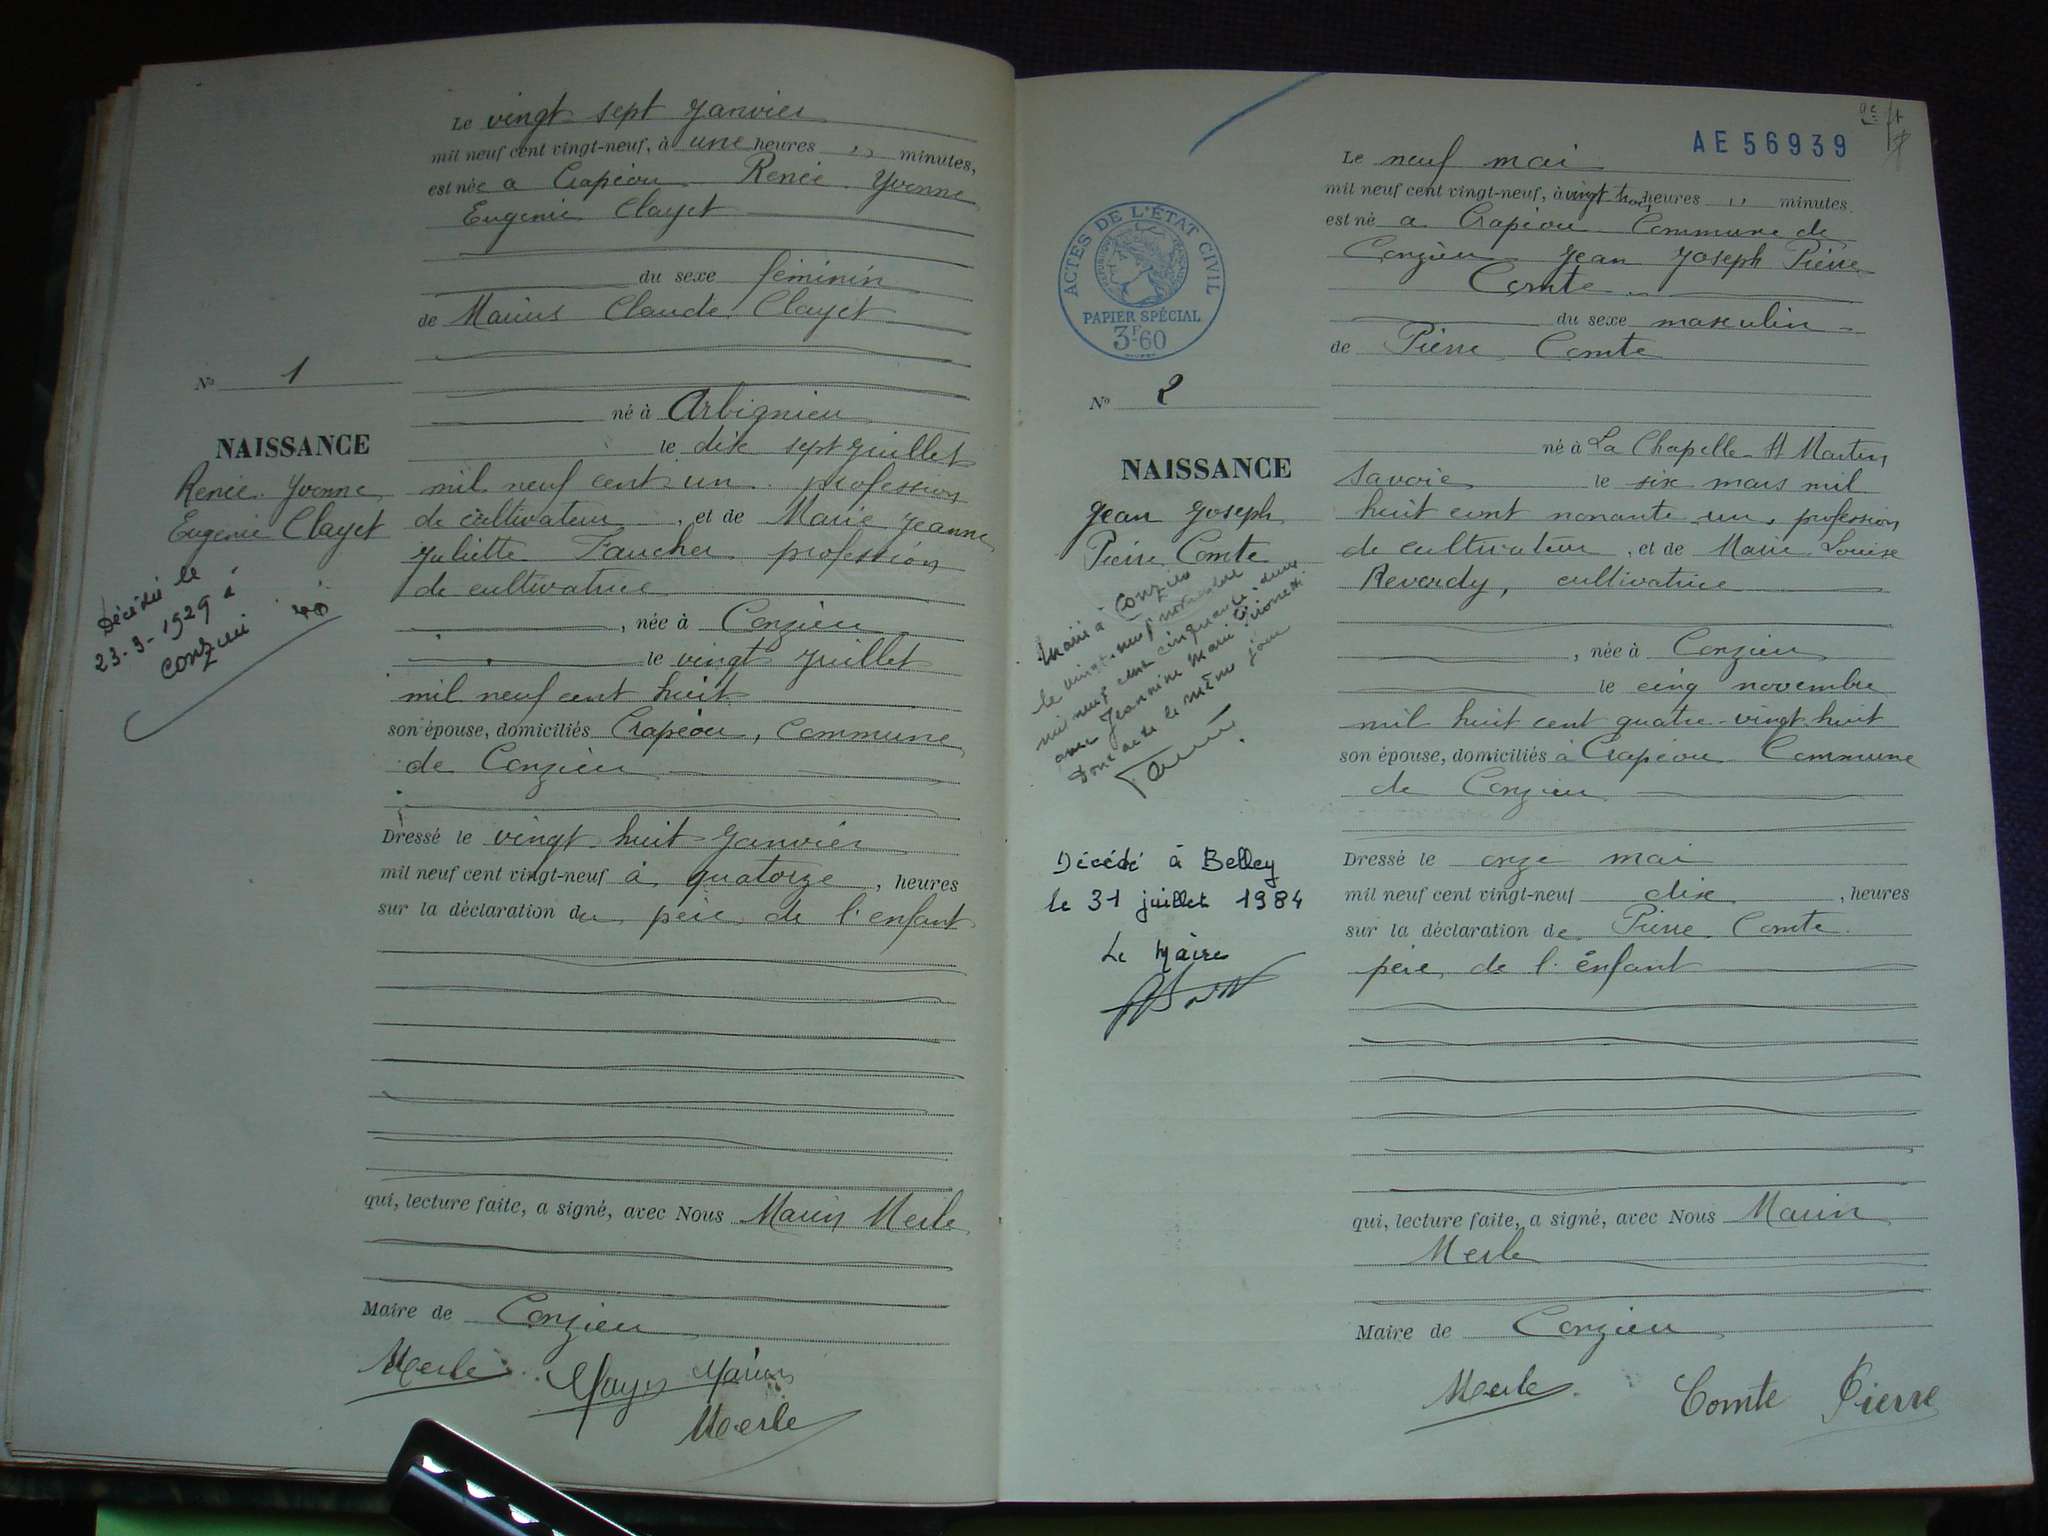 Le vingt sept Janvier
mil neuf cent vingt-neuf, à une heures " minutes,
est née a Crapéou Renée Yvonne
Eugenie Clayet
du sexe féminin
de Marius Claude Clayet
né à Arbignieu
le dix sept juillet
mil neuf cent un profession
de cultivateur, et de Marie Jeanne
Juliette Faucher profession
de cultivatrice
, née à Conzieu
le vingt juillet
mil neuf cent huit
son épouse, domiciliés Crapéou, Commune
de Conzieu
Dressé le vingt huit Janvier
mil neuf cent vingt-neuf à quatorze, heures
sur la déclaration du père de l'enfant
qui, lecture faite, a signé, avec Nous Marin Merle
Maire de Conzieu
Merle Marius
Merle
No 1
NAISSANCE
Renée Yvonne
Eugenie Clayet
Décédée le
23-3-1929 à
Conzieu
AE 56939
Le neuf mai
mil neuf cent vingt-neuf, à vingt trois heures " minutes
est né a Crapéou Commune de
Conzieu Jean Joseph Pierre
Comte
du sexe masculin
de Pierre Comte
né à La Chapelle St Martin
Savoie le six mars mil
huit cent nonante un, profession
de cultivateur, et de Marie Louise
Reverdy, cultivatrice
, née à Conzieu
le cinq novembre
mil huit cent quatre-vingt huit
son épouse, domiciliés à Crapéou Commune
de Conzieu
Dressé le onze mai
mil neuf cent vingt-neuf dix, heures
sur la déclaration de Pierre Comte
père de l'enfant
qui, lecture faite, a signé, avec Nous Marin
Merle
Maire de Conzieu
Merle Comte Pierre
ACTES DE L'ÉTAT CIVIL
PAPIER SPÉCIAL
3F.60
No 2
NAISSANCE
Jean Joseph
Pierre Comte
Marié à Conzieu
le vingt-neuf novembre
mil neuf cent cinquante deux
avec Jeannine Marie
Dont acte le même jour
Décédé à Belley
le 31 juillet 1984
Le Maire